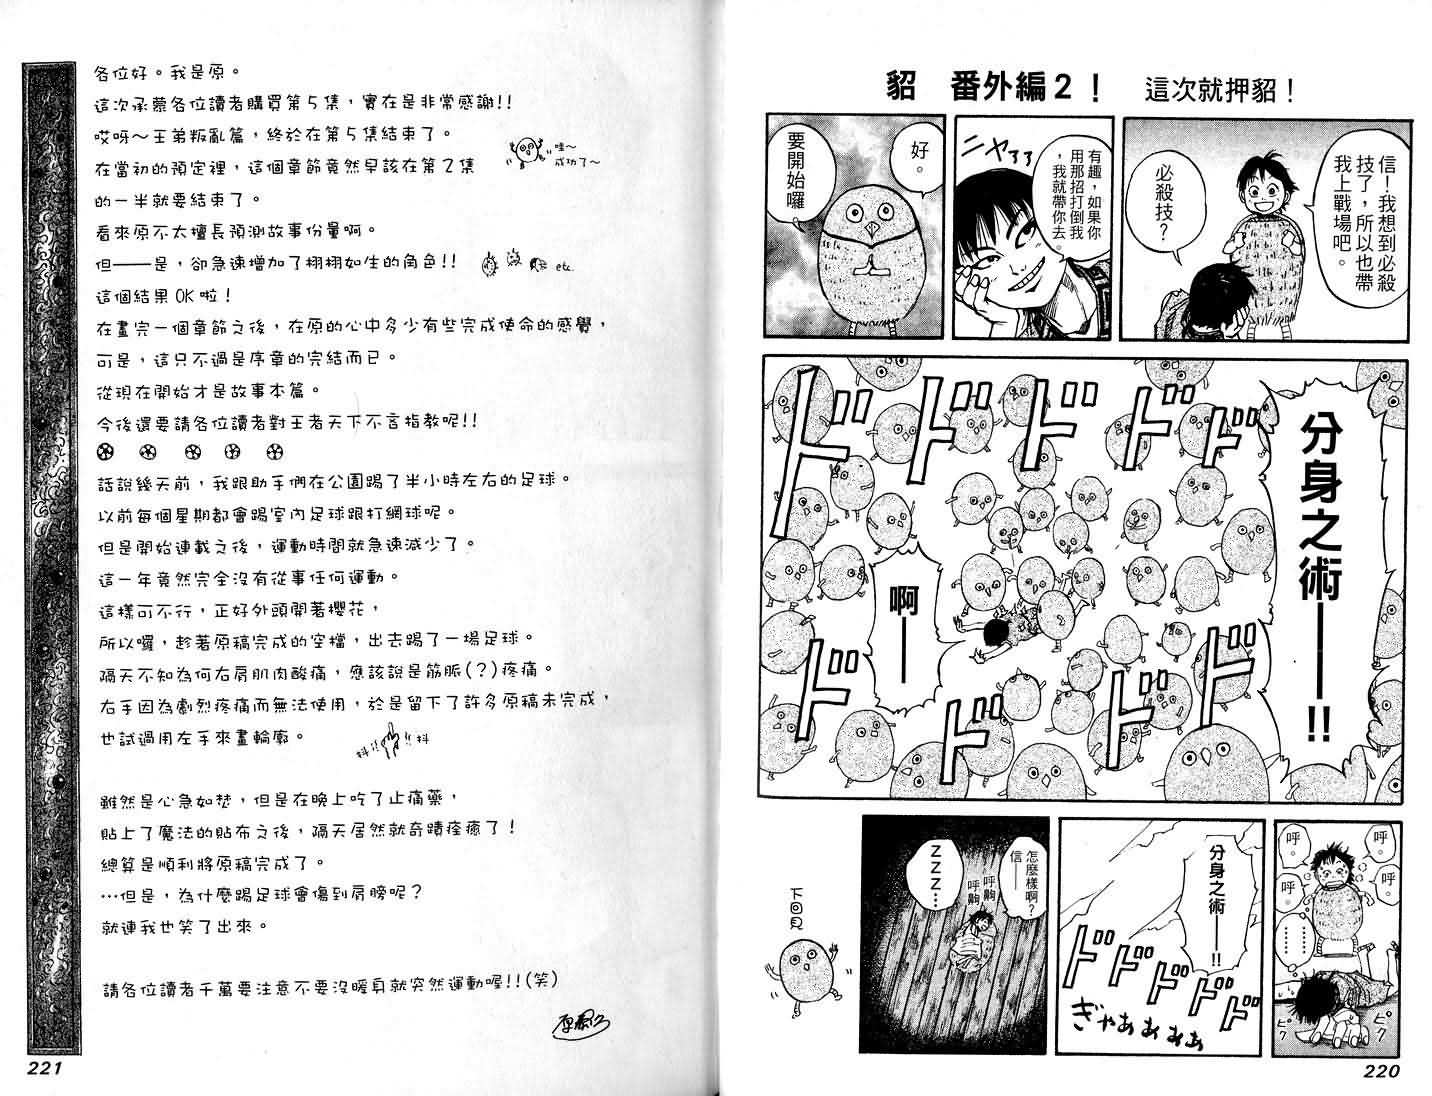 貂　番外編2！　這次就押貂！
信！我想到必殺
技了，所以也帶
我上戰場吧。
必殺技？
有趣，如果你
用那招打倒我
，我就帶你去。
ニヤ
好。
要開始囉
分身之術——!!
ドドドドドド
啊——
ドドドド
呼。
呼。
呼。
呼。
………
ピク
ピク
分身之術——!!
ドドドドド
ぎゃあぁぁぁぁ
怎麼樣啊？
信——
呼齁
呼齁
ZZZ…
下回見
220
各位好。我是原。
這次承蒙各位讀者購買第5集，實在是非常感謝!!
哎呀～王弟叛亂篇，終於在第5集結束了。
哇～
成功了～
在當初的預定裡，這個章節竟然早該在第2集
的一半就要結束了。
看來原不太擅長預測故事份量啊。
但——是，卻急速增加了栩栩如生的角色!!
etc.
這個結果OK啦！
在畫完一個章節之後，在原的心中多少有些完成使命的感覺，
可是，這只不過是序章的完結而已。
從現在開始才是故事本篇。
今後還要請各位讀者對王者天下不吝指教呢!!
話說幾天前，我跟助手們在公園踢了半小時左右的足球。
以前每個星期都會踢室內足球跟打網球呢。
但是開始連載之後，運動時間就急速減少了。
這一年竟然完全沒有從事任何運動。
這樣可不行，正好外頭開著櫻花，
所以囉，趁著原稿完成的空檔，出去踢了一場足球。
隔天不知為何右肩肌肉酸痛，應該說是筋脈(？)疼痛。
右手因為劇烈疼痛而無法使用，於是留下了許多原稿未完成，
也試過用左手來畫輪廓。
抖!!
!!抖
雖然是心急如焚，但是在晚上吃了止痛藥，
貼上了魔法的貼布之後，隔天居然就奇蹟痊癒了！
總算是順利將原稿完成了。
…但是，為什麼踢足球會傷到肩膀呢？
就連我也笑了出來。
請各位讀者千萬要注意不要沒暖身就突然運動喔!!(笑)
原泰久
221